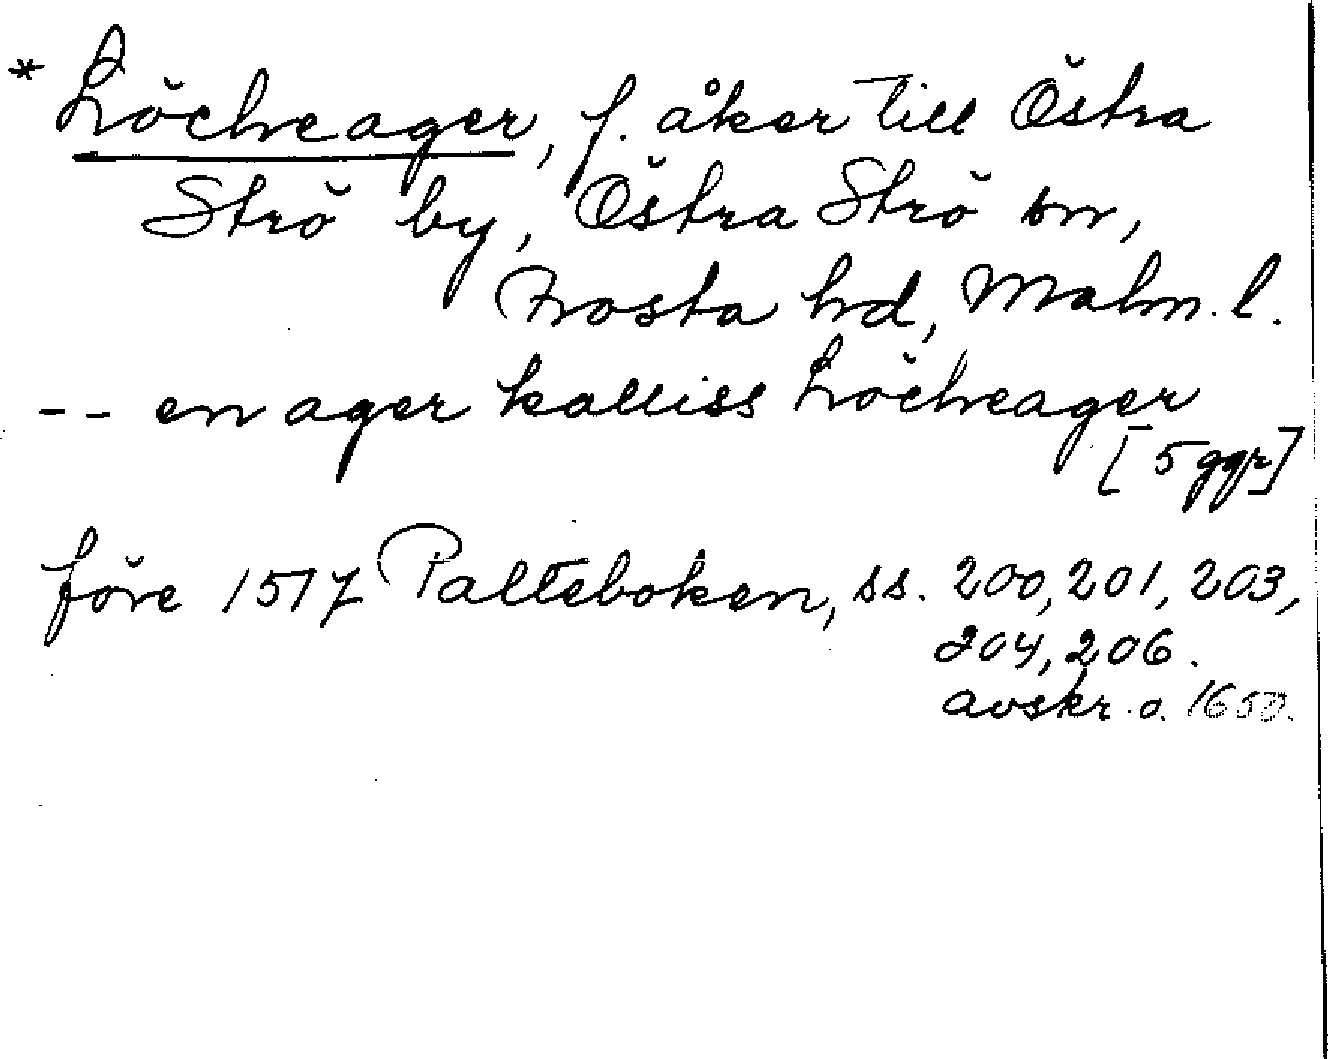 * Löcheager, f. åker till Östra
Strö by, Östra Strö sn,
Frosta hd, Malm. l.
-- en ager kalliss Löcheager
[5 ggr]
före 1517 Palteboken, ss. 200, 201, 203,
204, 206.
avskr. o. 1650.